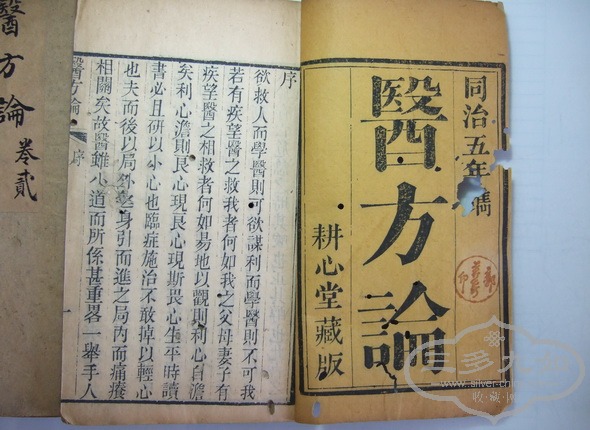 同治五年鐫
醫方論
耕心堂藏版
序
欲救人而學醫則可欲謀利而學醫則不可我
若有疾望醫之救我者何如我之父母妻子有
疾望醫之相救者何如易地以觀則利心自澹
矣利心澹則良心現良心現斯畏心生平時讀
書必且研以小心也臨症施治不敢掉以輕心
也夫而後以局外之身引而進之局內而痛癢
相關矣故醫雖小道而所係甚重畧一舉手人
醫方論
序
醫方論
卷貳
www.silver.ch
收·藏